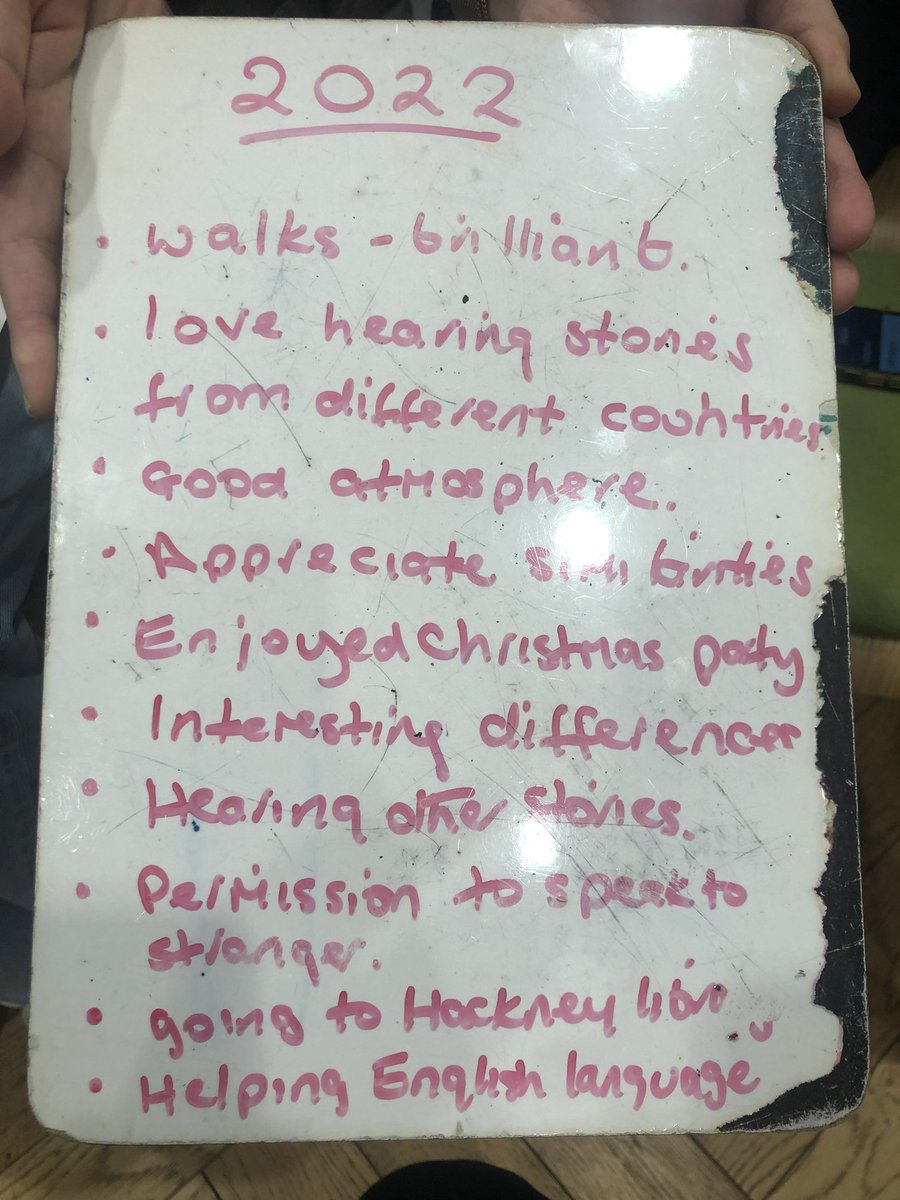 2022
• walks - brilliant.
• love hearing stories
from different countries
• Good atmosphere.
• Appreciate
• Enjoyed Christmas party
• Interesting differences
• Hearing other stories.
• Permission to speak to
stranger.
• going to Hackney
• Helping English language